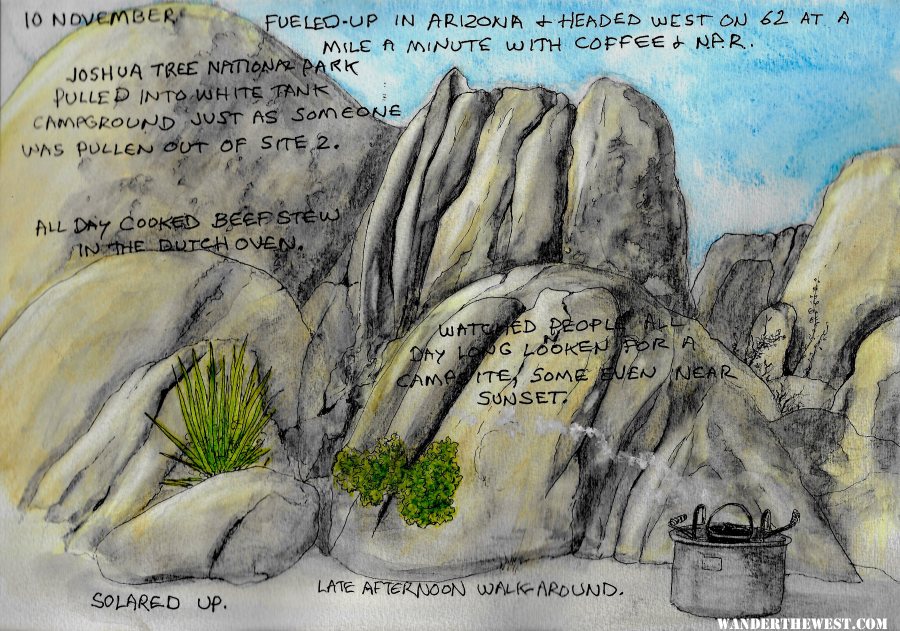 10 NOVEMBER.
FUELED-UP IN ARIZONA & HEADED WEST ON 62 AT A
MILE A MINUTE WITH COFFEE & N.P.R.
JOSHUA TREE NATIONAL PARK
PULLED INTO WHITE TANK
CAMPGROUND JUST AS SOMEONE
WAS PULLEN OUT OF SITE 2.
ALL DAY COOKED BEEF STEW
IN THE DUTCH OVEN.
WATCHED PEOPLE ALL
DAY LONG LOOKEN FOR A
CAMPSITE, SOME EVEN NEAR
SUNSET.
SOLARED UP.
LATE AFTERNOON WALK-AROUND.
WANDERTHEWEST.COM